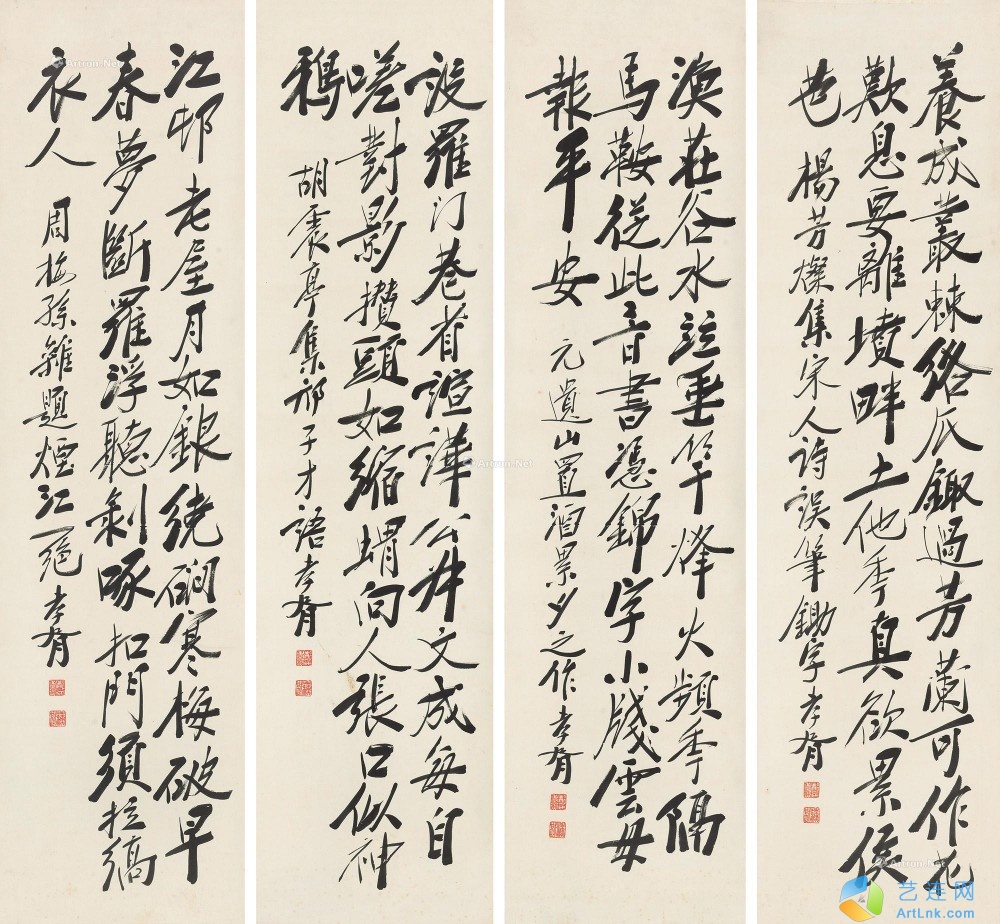 養成叢棘絡瓜鋤過芳蘭可作花
歎息要離墳畔土他年真欲累侯
芭
楊芳燦集宋人詩誤筆鋤字孝胥
漁莊谷水注垂竿烽火頻年隔
馬鞍從此音書憑錦字小牋雲母
報平安
元遺山置酒累夕之作孝胥
設羅門巷省諠譁公幹文成每自
嗟對影攢頭如縮蝟向人張口似神
鴉
胡震亭集祁子才語孝胥
江邨老屋月如銀繞磵寒梅破早
春夢斷羅浮聽剝啄扣門須拉縞
衣人
周梅孫雜題煙江一絕孝胥
艺连网
ArtLnk.com